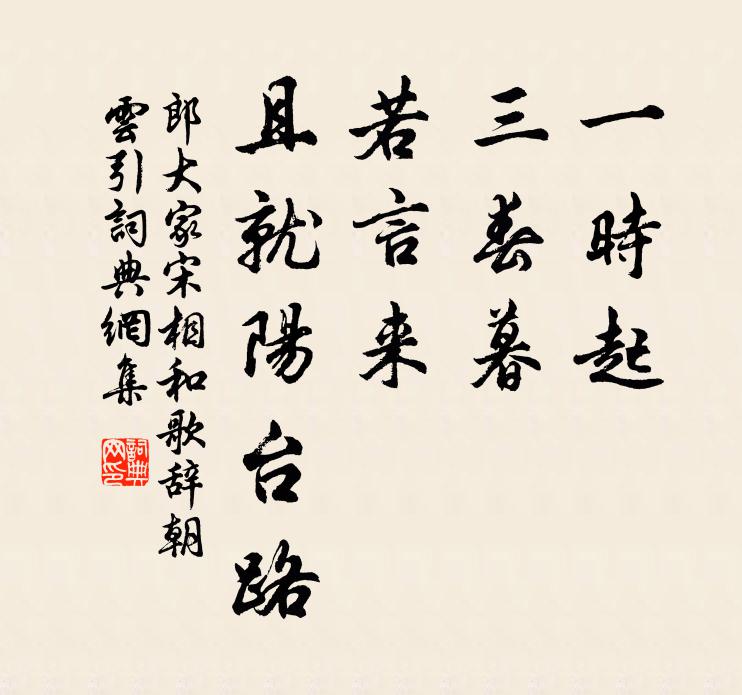 一時起
三春暮
若言来
且就陽台路
郎大家宋相和歌辞朝
雲引詞典網集
詞典
网印